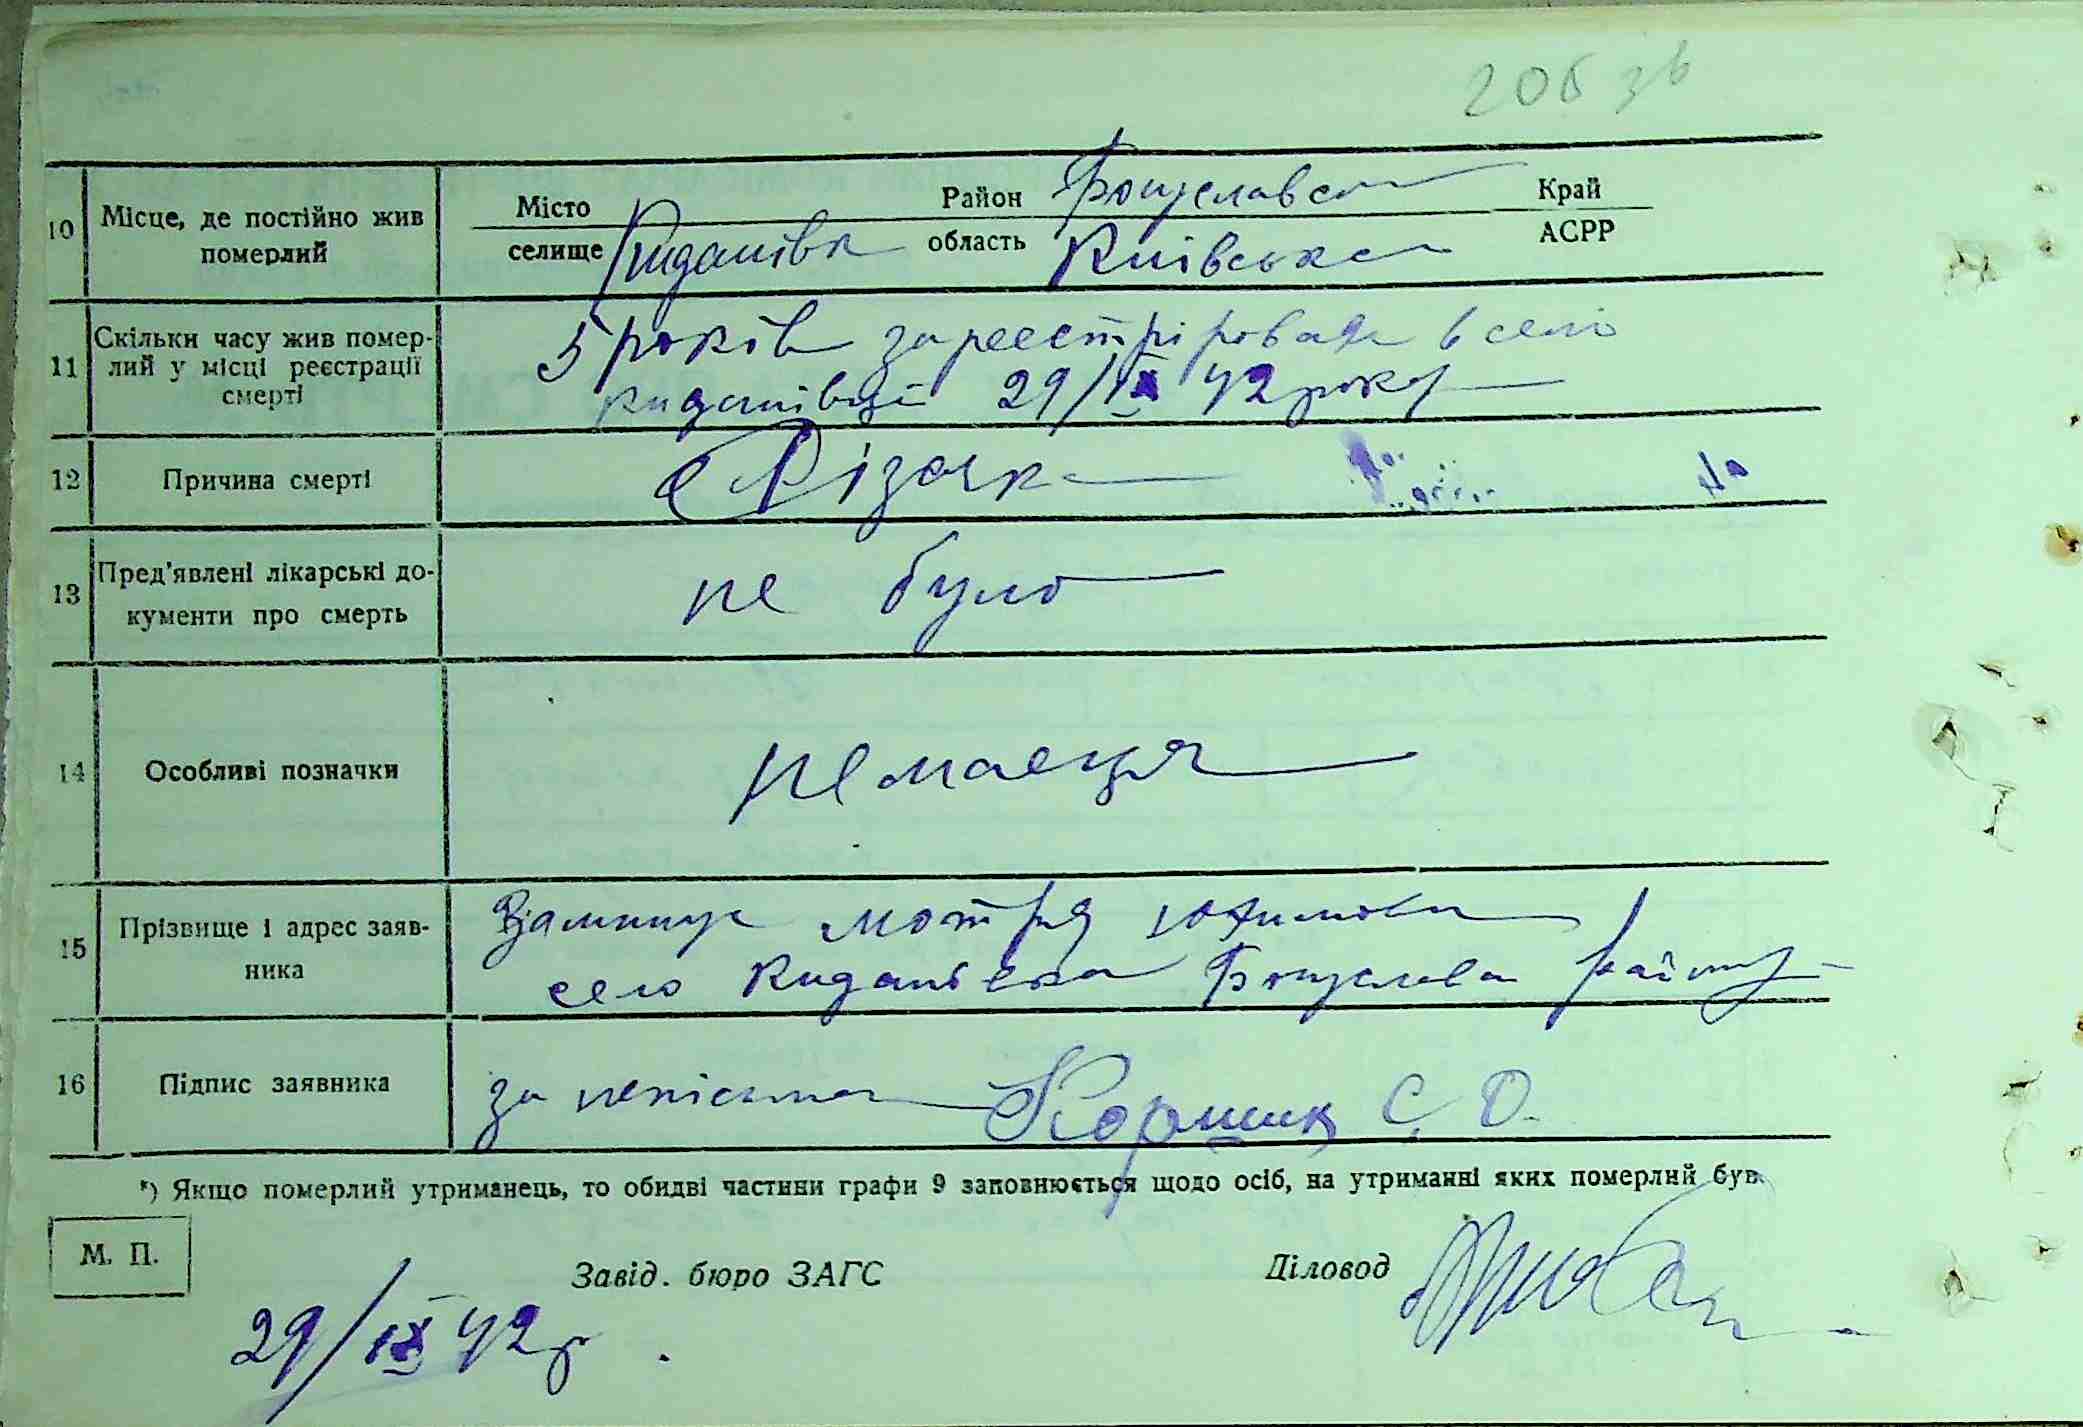 206 зв
10 Місце, де постійно жив померлий Місто селище Киданівка Район Богуславськ область Київська Край АСРР
11 Скільки часу жив помер-
лий у місці реєстрації
смерті
5 років зареєстрірована в селі
киданівці 29/IX 42 року
12 Причина смерті Різачка
13 Пред'явлені лікарські до-
кументи про смерть
не було
14 Особливі позначки немаеця
15 Прізвище і адрес заяв-
ника
Мотря Юхимовна
село Киданівка Богуслава району
16 Підпис заявника за неписьмен С. О.
*) Якщо померлий утриманець, то обидві частини графи 9 заповнюється щодо осіб, на утриманні яких померлий був.
М. П. Завід. бюро ЗАГС Діловод
29/IX 42 р.